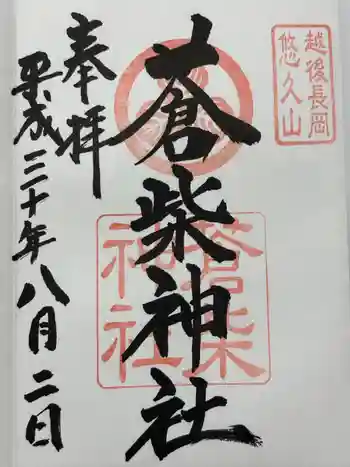 越後長岡
悠久山
奉拝
蒼柴神社
蒼柴
神社
平成三十年八月二日